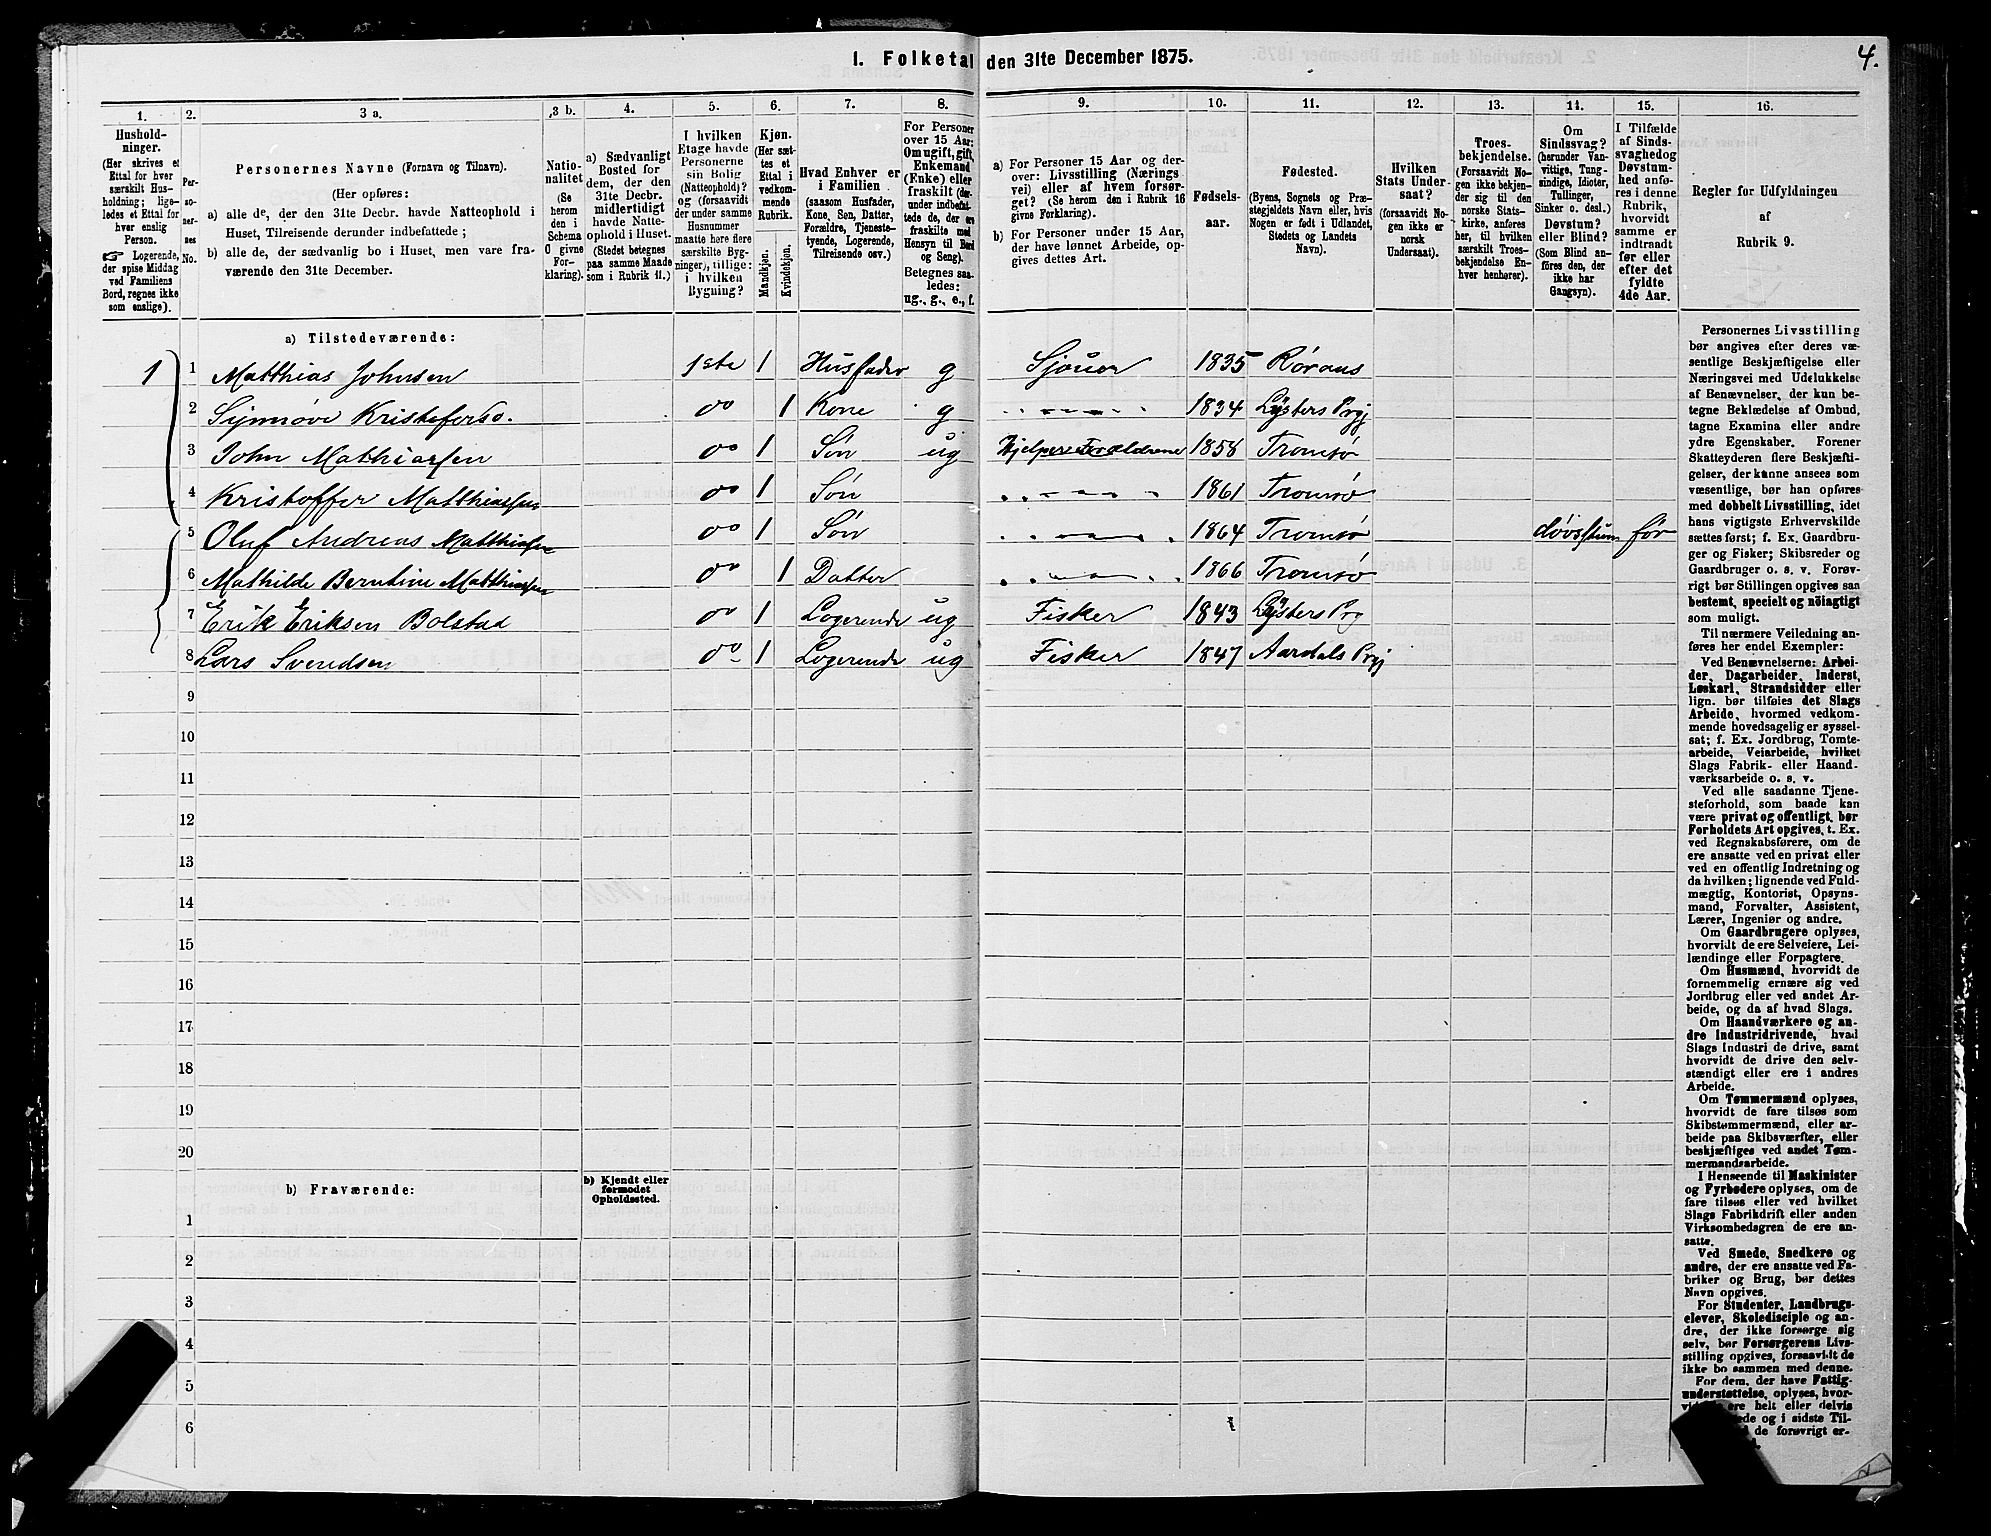 1. Folketal den 31te December 1875.
4.
1. 2. 3 a. 3 b. 4. 5. 6. 7. 8. 9. 10. 11. 12. 13. 14. 15. 16.
Hushold-
ninger.
(Her skrives et
Ettal for hver
særskilt Hus-
holdning; lige-
ledes et Ettal for
hver enslig
Person.
☞ Logerende,
der spise Middag
ved Familiens
Bord, regnes ikke
som enslige).
Per-
so-
ner-
nes
No.
Personernes Navne (Fornavn og Tilnavn).
(Her opføres:
a) alle de, der den 31te Decbr. havde Natteophold i
Huset, Tilreisende derunder indbefattede;
b) alle de, der sædvanlig bo i Huset, men vare fra-
værende den 31te December.
Natio-
nalitet
(Se
herom
den i
Schema
O givne
For-
klaring).
a) Sædvanligt
Bosted for
dem, der den
31te Decbr.
midlertidigt
havde Natte-
ophold i Huset.
(Stedet betegnes
paa samme Maade
som i Rubrik 11.)
I hvilken
Etage havde
Personerne
sin Bolig
(Natteophold)?
og (forsaavidt
der under samme
Husnummer
maatte høre flere
særskilte Byg-
ninger), tillige:
i hvilken
Bygning?
Kjøn.
(Her sæt-
tes et
Ettal i
vedkom-
mende
Rubrik.
Mandkjøn.
Kvindekjøn.
Hvad Enhver er
i Familien
(saasom Husfader,
Kone, Søn, Datter,
Forældre, Tjeneste-
tyende, Logerende,
Tilreisende osv.)
For Personer
over 15 Aar:
Om ugift, gift,
Enkemand
(Enke) eller
fraskilt (der-
under indbefat-
tede de, der ere
fraskilte med
Hensyn til Bord
og Seng).
Betegnes saa-
ledes:
ug., g., e., f.
a) For Personer 15 Aar og der-
over: Livsstilling (Nærings-
vei) eller af hvem forsør-
get? (Se herom den i Rubrik 16
givne Forklaring).
b) For Personer under 15 Aar,
der have lønnet Arbeide, op-
gives dettes Art.
Fødsels-
aar.
Fødested.
(Byens, Sognets og Præ-
stegjeldets Navn eller, hvis
Nogen er født i Udlandet,
Stedets og Landets
Navn).
Hvilken
Stats Under-
saat?
(forsaavidt No-
gen ikke er
norsk
Undersaat).
Troes-
bekjendelse.
(Forsaavidt No-
gen ikke bekjen-
der sig til den
norske Stats-
kirke, anføres
her, til hvilken
særskilt Troes-
bekjendelse En-
hver henhører).
Om
Sindssvag?
(herunder Van-
vittige, Tung-
sindige, Idioter,
Tullinger,
Sinker o. desl.)
Døvstum?
eller Blind?
(Som Blind an-
føres den, der
ikke har
Gangsyn).
I Tilfælde
af Sinds-
svaghed og
Døvstum-
hed anfø-
res i denne
Rubrik,
hvorvidt
samme er
indtraadt
før eller
efter det
fyldte
4de Aar.
Regler for Udfyldningen
af
Rubrik 9.
a) Tilstedeværende:
1 1 Matthias Johnsen 1ste 1 Husfader g Sjouer 1835 Røraas
2 Synnøve Kristofersd. oo 1 Kone g " 1834 Lysters Prgj
3 John Mathiassen oo 1 Søn ug Hjelper Forældrene 1858 Tromsø
4 Kristoffer Matthiassen oo 1 Søn " 1861 Tromsø
5 Oluf Andreas Matthiassen oo 1 Søn " 1864 Tromsø døvstum før
6 Mathilde Berntine Matthiassen oo 1 Datter " 1866 Tromsø
7 Erik Eriksen Bolstad oo 1 Logerende ug Fisker 1843 Lysters Prg
8 Lars Svendsen oo 1 Logerende ug Fisker 1847 Aardals Prgj
9
10
11
12
13
14
15
16
17
18
19
20
b) Fraværende:
b) Kjendt eller
formodet
Opholdssted.
1
2
3
4
5
6
Personernes Livsstilling
bør angives efter deres væ-
sentlige Beskjæftigelse eller
Næringsvei med Udelukkelse
af Benævnelser, der kun be-
tegne Beklædelse af Ombud,
tagne Examina eller andre
ydre Egenskaber. Forener
Skatteyderen flere Beskjæfti-
gelser, der kunne ansees som
væsentlige, bør han opføres
med dobbelt Livsstilling, idet
hans vigtigste Erhvervskilde
sættes først; f. Ex. Gaardbru-
ger og Fisker; Skibsreder og
Gaardbruger o. s. v. Forøv-
rigt bør Stillingen opgives saa
bestemt, specielt og nöiagtigt
som muligt.
Til nærmere Veiledning an-
føres her endel Exempler:
Ved Benævnelserne: Arbei-
der, Dagarbeider, Inderst,
Løskarl, Strandsidder eller
lign. bør tilføies det Slags
Arbeide, hvormed vedkom-
mende hovedsagelig er syssel-
sat; f. Ex. Jordbrug, Tomte-
arbeide, Veiarbeide, hvilket
Slags Fabrik- eller Haand-
værksarbeide o. s. v.
Ved alle saadanne Tjene-
steforhold, som baade kan
være privat og offentligt, bør
Forholdets Art opgives, t. Ex.
ved Regnskabsførere, om de
ere ansatte ved en privat eller
ved en offentlig Indretning og
da hvilken; lignende ved Fuld-
mægtig, Kontorist, Opsyns-
mand, Forvalter, Assistent,
Lærer, Ingeniør og andre.
Om Gaardbrugere oplyses,
hvorvidt de ere Selveiere, Lei-
lændinge eller Forpagtere.
Om Husmænd, hvorvidt de
fornemmelig ernære sig ved
Jordbrug eller ved andet Ar-
beide, og da af hvad Slags.
Om Haandværkere og an-
dre Industridrivende, hvad
Slags Industri de drive, samt
hvorvidt de drive den selv-
stændigt eller ere i andres
Arbeide.
Om Tømmermænd oplyses,
hvorvidt de fare tilsøs som
Skibstømmermænd, eller ar-
beide paa Skibsværfter, eller
beskjæftiges ved andet Tøm-
mermandsarbeide.
I Henseende til Maskinister
og Fyrbødere oplyses, om de
fare tilsøs eller ved hvilket
Slags Fabrikdrift eller anden
Virksombedsgren de ere an-
satte.
Ved Smede, Snedkere og
andre, der ere ansatte ved Fa-
briker og Brug, bør dettes
Navn opgives.
For Studenter, Landbrugs-
elever, Skoledisciple og an-
dre, der ikke forsørge sig
selv, bør Forsørgerens Livs-
stilling opgives, forsaavidt de
ikke bo sammen med denne.
For dem, der have Fattig-
understøttelse, oplyses, hvor-
ere helt eller delvis
og i sidste Til-
de forøvrigt er-